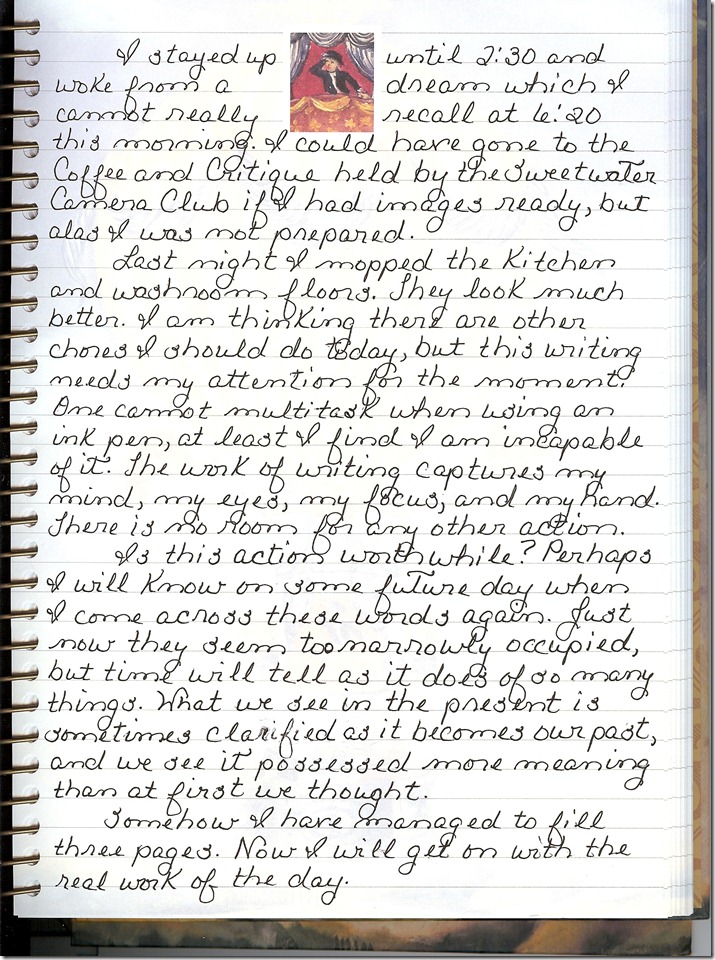 I stayed up until 2:30 and
woke from a dream which I
cannot really recall at 6:20
this morning. I could have gone to the
Coffee and Critique held by the Sweetwater
Camera Club if I had images ready, but
alas I was not prepared.
Last night I mopped the Kitchen
and washroom floors. They look much
better. I am thinking there are other
chores I should do today, but this writing
needs my attention for the moment.
One cannot multitask when using an
ink pen, at least I find I am incapable
of it. The work of writing captures my
mind, my eyes, my focus, and my hand.
There is no room for any other action.
Is this action worthwhile? Perhaps
I will Know on some future day when
I come across these words again. Just
now they seem too narrowly occupied,
but time will tell as it does of so many
things. What we see in the present is
sometimes clarified as it becomes our past,
and we see it possessed more meaning
than at first we thought.
Somehow I have managed to fill
three pages. Now I will get on with the
real work of the day.